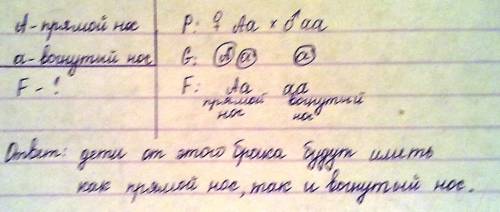 А-прямой нос
а-вогнутый нос
F - ?
P: ♀ Aa × ♂ aa
G: A a a
F: Aa aa
прямой нос вогнутый нос
Ответ: дети от этого брака будут иметь
как прямой нос, так и вогнутый нос.